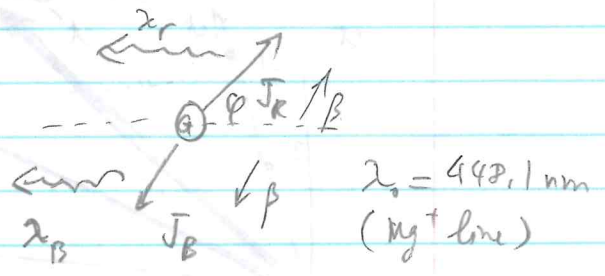 λr
φ J_R β
λ_B J_B β λ₀ = 448.1 nm
(Mg⁺ line)